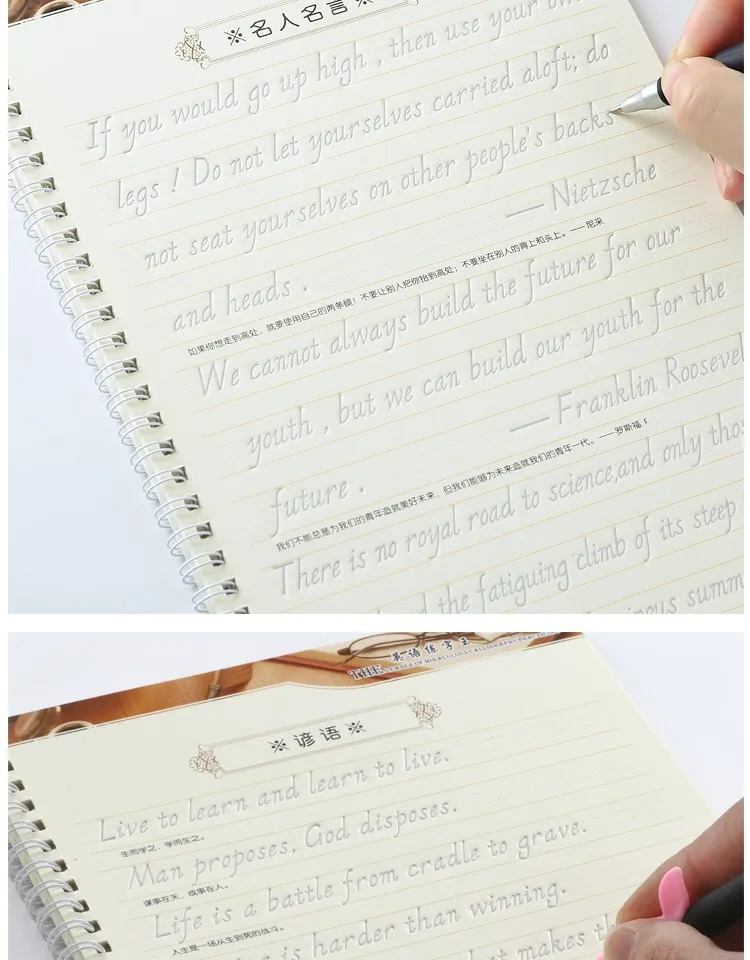 ※名人名言※
If you would go up high , then use your own
legs ! Do not let yourselves carried aloft; do
not seat yourselves on other people's backs
and heads .
— Nietzsche
如果你想走到高处，就要使用自己的两条腿！不要让别人把你抬到高处；不要坐在别人的背上和头上。——尼采
We cannot always build the future for our
youth , but we can build our youth for the
future .
— Franklin Roosevel
我们不能总是为我们的青年造就美好未来，但我们能够为未来造就我们的青年一代。——罗斯福 F.
There is no royal road to science,and only thos
the fatiguing climb of its steep
summ
英语练字王
THE LEADER OF MIRACULOUS CALLIGRAPHY
※谚语※
Live to learn and learn to live.
生而学之，学而生之。
Man proposes, God disposes.
谋事在天，成事在人。
Life is a battle from cradle to grave.
人生是一场从生到死的战斗。
is harder than winning.
makes th